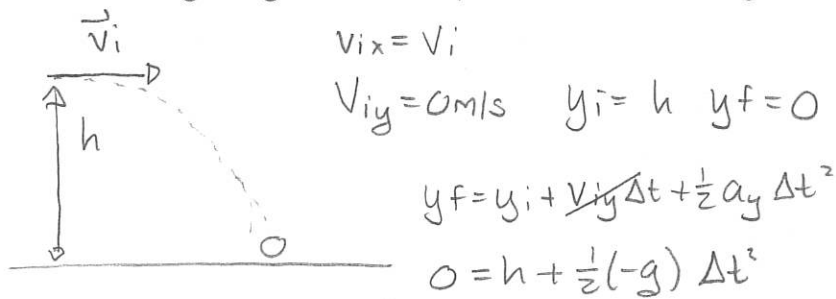 v⃗i
h
vix = Vi
Viy = 0m/s yi = h yf = 0
yf = yi + Viy Δt + ½ ay Δt²
0 = h + ½(-g) Δt²